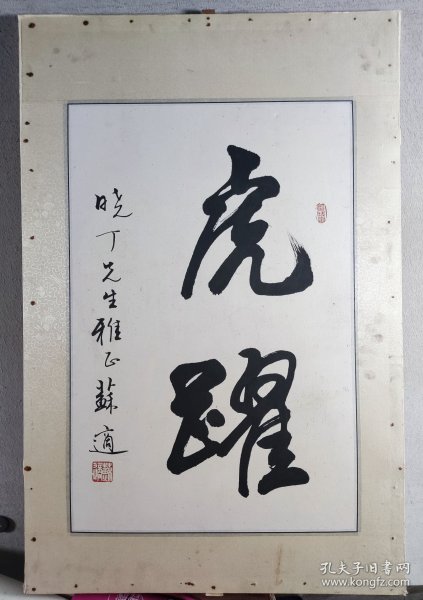 虎躍
晓丁先生雅正蘇適
孔夫子旧书网
www.kongfz.com